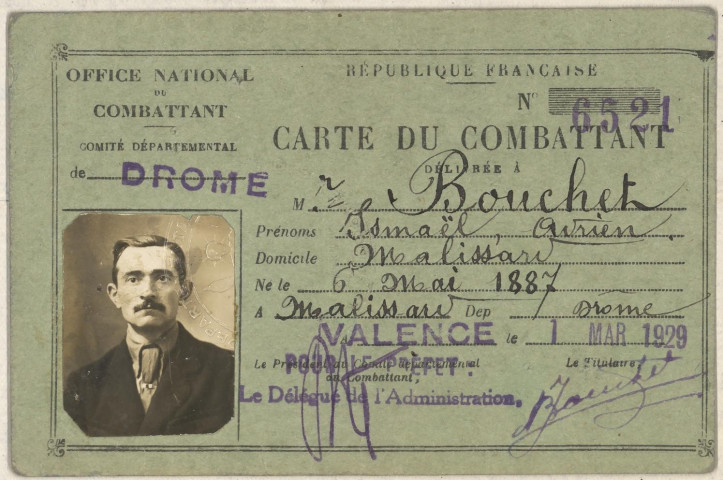 OFFICE NATIONAL
DU
COMBATTANT
COMITÉ DÉPARTEMENTAL
de DROME
RÉPUBLIQUE FRANÇAISE
N° 6521
CARTE DU COMBATTANT
DÉLIVRÉE À
M r Bouchet
Prénoms Ismaël, Adrien.
Domicile Malissard
Né le 6 Mai 1887
A Malissard Dep Drome
A VALENCE le 1 MAR 1929
Le Président du Comité départemental
du Combattant,
POUR LE PREFET.
Le Délégué de l'Administration,
Le Titulaire,
Bouchet